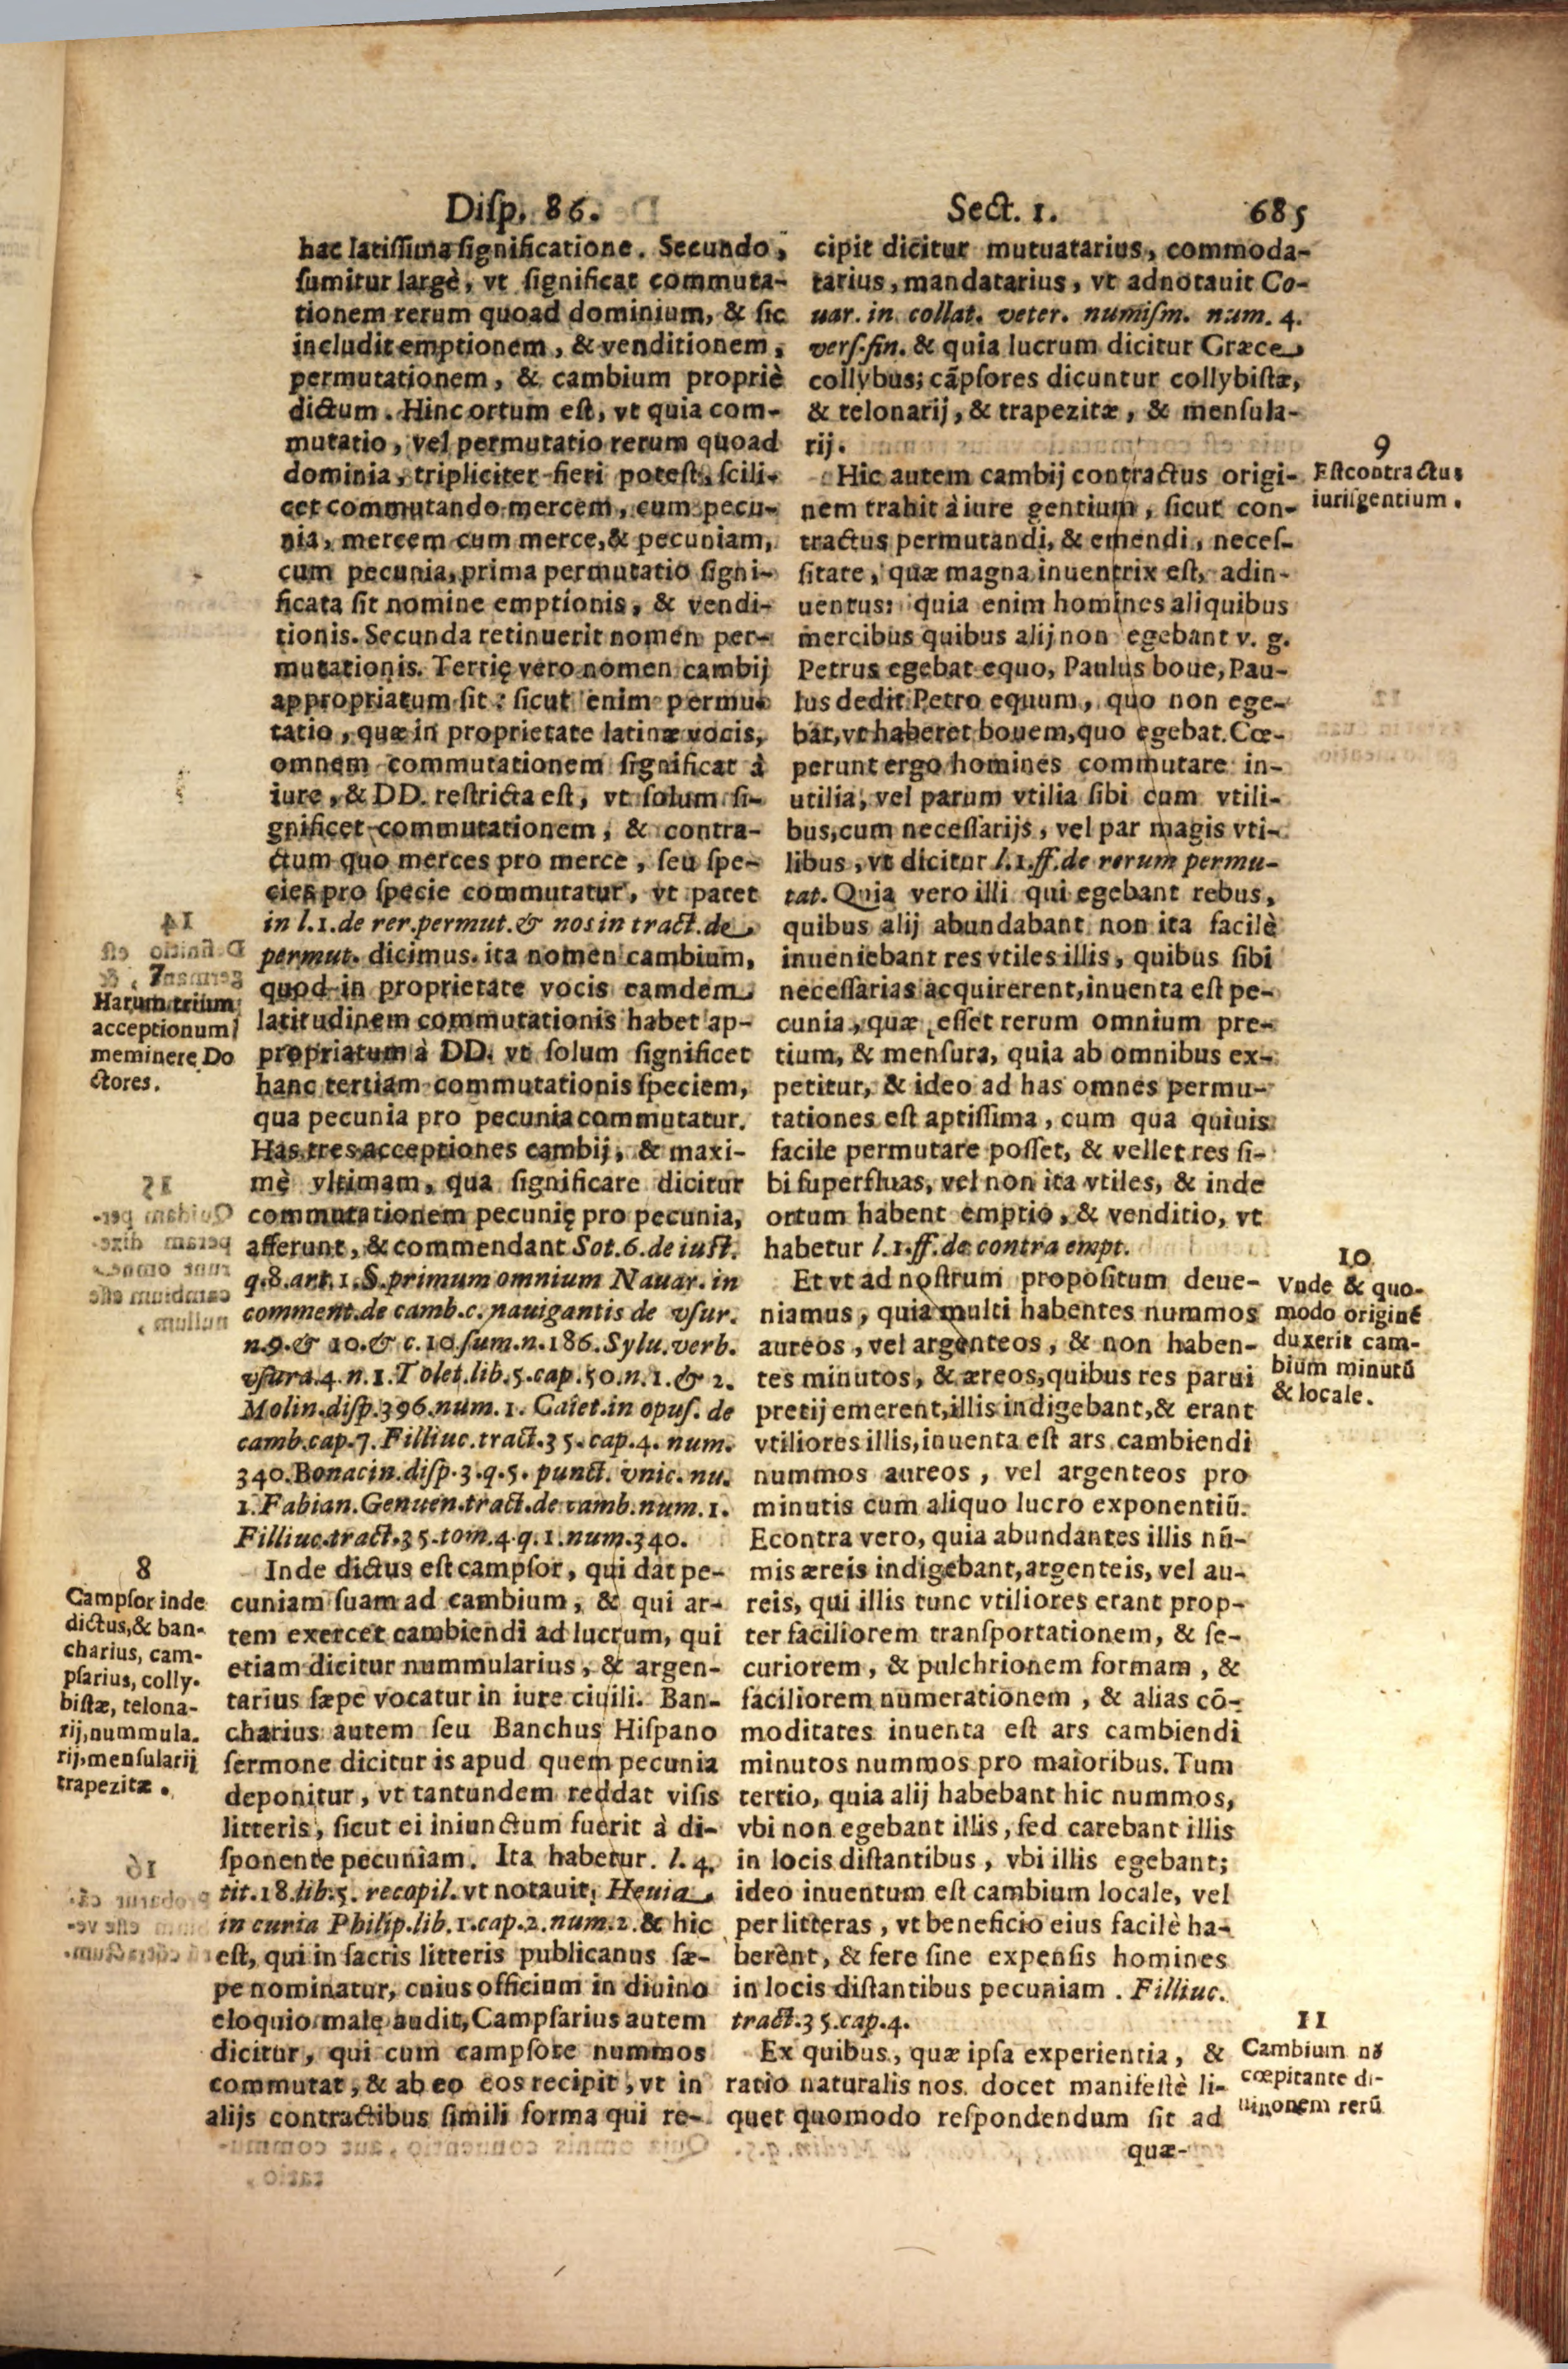 Disp. 86.
Sect. 1.
685
hac latissima significatione. Secundo,
sumitur largè, vt significat commuta-
tionem rerum quoad dominium, & sic
includit emptionem, & venditionem,
permutationem, & cambium propriè
dictum. Hinc ortum est, vt quia com-
mutatio, vel permutatio rerum quoad
dominia, tripliciter fieri potest, scili-
cet commutando mercem, cum pecu-
nia, mercem cum merce, & pecuniam,
cum pecunia, prima permutatio signi-
ficata sit nomine emptionis, & vendi-
tionis. Secunda retinuerit nomen per-
mutationis. Tertię vero nomen cambij
appropriatum sit: sicut enim permu-
tatio, quæ in proprietate latinæ vocis,
omnem commutationem significat à
iure, & DD. restricta est, vt solum si-
gnificet commutationem, & contra-
ctum quo merces pro merce, seu spe-
cies pro specie commutatur, vt patet
in l.1.de rer.permut.& nos in tract.de
permut. dicimus. ita nomen cambium,
quod in proprietate vocis eamdem
latitudinem commutationis habet ap-
propriatum à DD. vt solum significet
hanc tertiam commutationis speciem,
qua pecunia pro pecunia commutatur.
Has tres acceptiones cambij, & maxi-
mè vltimam, qua significare dicitur
commutationem pecunię pro pecunia,
afferunt, & commendant Sot.6.de iust.
q.8.art.1.§.primum omnium Nauar. in
comment.de camb.c.nauigantis de vsur.
n.9.& 10.& c.10.sum.n.186.Sylu.verb.
vsura.4.n.1.Tolet.lib.5.cap.50.n.1.& 2.
Molin.disp.396.num.1. Caiet.in opus. de
camb.cap.7.Filliuc.tract.35.cap.4. num.
340.Bonacin.disp.3.q.5. punct. vnic. nu.
1.Fabian.Genuen.tract.de camb.num.1.
Filliuc.tract.35.tom.4.q.1.num.340.
Inde dictus est campsor, qui dat pe-
cuniam suam ad cambium, & qui ar-
tem exercet cambiendi ad lucrum, qui
etiam dicitur nummularius, & argen-
tarius sæpe vocatur in iure ciuili. Ban-
charius autem seu Banchus Hispano
sermone dicitur is apud quem pecunia
deponitur, vt tantundem reddat visis
litteris, sicut ei iniunctum fuerit à di-
sponente pecuniam. Ita habetur. l. 4.
tit.18.lib.5. recopil. vt notauit, Heuia
in curia Philip.lib.1.cap.2.num.2. & hic
est, qui in sacris litteris publicanus sæ-
pe nominatur, cuius officium in diuino
eloquio male audit, Campsarius autem
dicitur, qui cum campsore nummos
commutat, & ab eo eos recipit, vt in
alijs contractibus simili forma qui re-
7
Harum trium
acceptionum
meminere Do
ctores.
8
Campsor inde
dictus,& ban-
charius, cam-
psarius, colly-
bistæ, telona-
rij, nummula-
rij, mensularij
trapezitæ.
cipit dicitur mutuatarius, commoda-
tarius, mandatarius, vt adnotauit Co-
uar. in collat. veter. numism. num. 4.
vers. fin. & quia lucrum dicitur Græce
collybus; cãpsores dicuntur collybistæ,
& telonarij, & trapezitæ, & mensula-
rij.
Hic autem cambij contractus origi-
nem trahit à iure gentium, sicut con-
tractus permutandi, & emendi, neces-
sitate, quæ magna inuentrix est, adin-
uentus: quia enim homines aliquibus
mercibus quibus alij non egebant v. g.
Petrus egebat equo, Paulus boue, Pau-
lus dedit Petro equum, quo non ege-
bat, vt haberet bouem, quo egebat. Cœ-
perunt ergo homines commutare in-
utilia, vel parum vtilia sibi cum vtili-
bus, cum necessarijs, vel par magis vti-
libus, vt dicitur l.1.ff.de rerum permu-
tat. Quia vero illi qui egebant rebus,
quibus alij abundabant non ita facilè
inueniebant res vtiles illis, quibus sibi
necessarias acquirerent, inuenta est pe-
cunia, quæ esset rerum omnium pre-
tium, & mensura, quia ab omnibus ex-
petitur, & ideo ad has omnes permu-
tationes est aptissima, cum qua quiuis
facile permutare posset, & vellet res si-
bi superfluas, vel non ita vtiles, & inde
ortum habent emptio, & venditio, vt
habetur l.1.ff.de contra empt.
Et vt ad nostrum propositum deue-
niamus, quia multi habentes nummos
aureos, vel argenteos, & non haben-
tes minutos, & æreos, quibus res parui
pretij emerent, illis indigebant, & erant
vtiliores illis, inuenta est ars cambiendi
nummos aureos, vel argenteos pro
minutis cum aliquo lucro exponentiũ.
Econtra vero, quia abundantes illis nũ-
mis æreis indigebant, argenteis, vel au-
reis, qui illis tunc vtiliores erant prop-
ter faciliorem transportationem, & se-
curiorem, & pulchrionem formam, &
faciliorem numerationem, & alias cõ-
moditates inuenta est ars cambiendi
minutos nummos pro maioribus. Tum
tertio, quia alij habebant hic nummos,
vbi non egebant illis, sed carebant illis
in locis distantibus, vbi illis egebant;
ideo inuentum est cambium locale, vel
per litteras, vt beneficio eius facilè ha-
berent, & fere sine expensis homines
in locis distantibus pecuniam. Filliuc.
tract.35.cap.4.
Ex quibus, quæ ipsa experientia, &
ratio naturalis nos docet manifestè li-
quet quomodo respondendum sit ad
quæ-
9
Est contractus
iuris gentium.
10
Vnde & quo-
modo originẽ
duxerit cam-
bium minutũ
& locale.
11
Cambium nõ
cœpit ante di-
uisionem rerũ